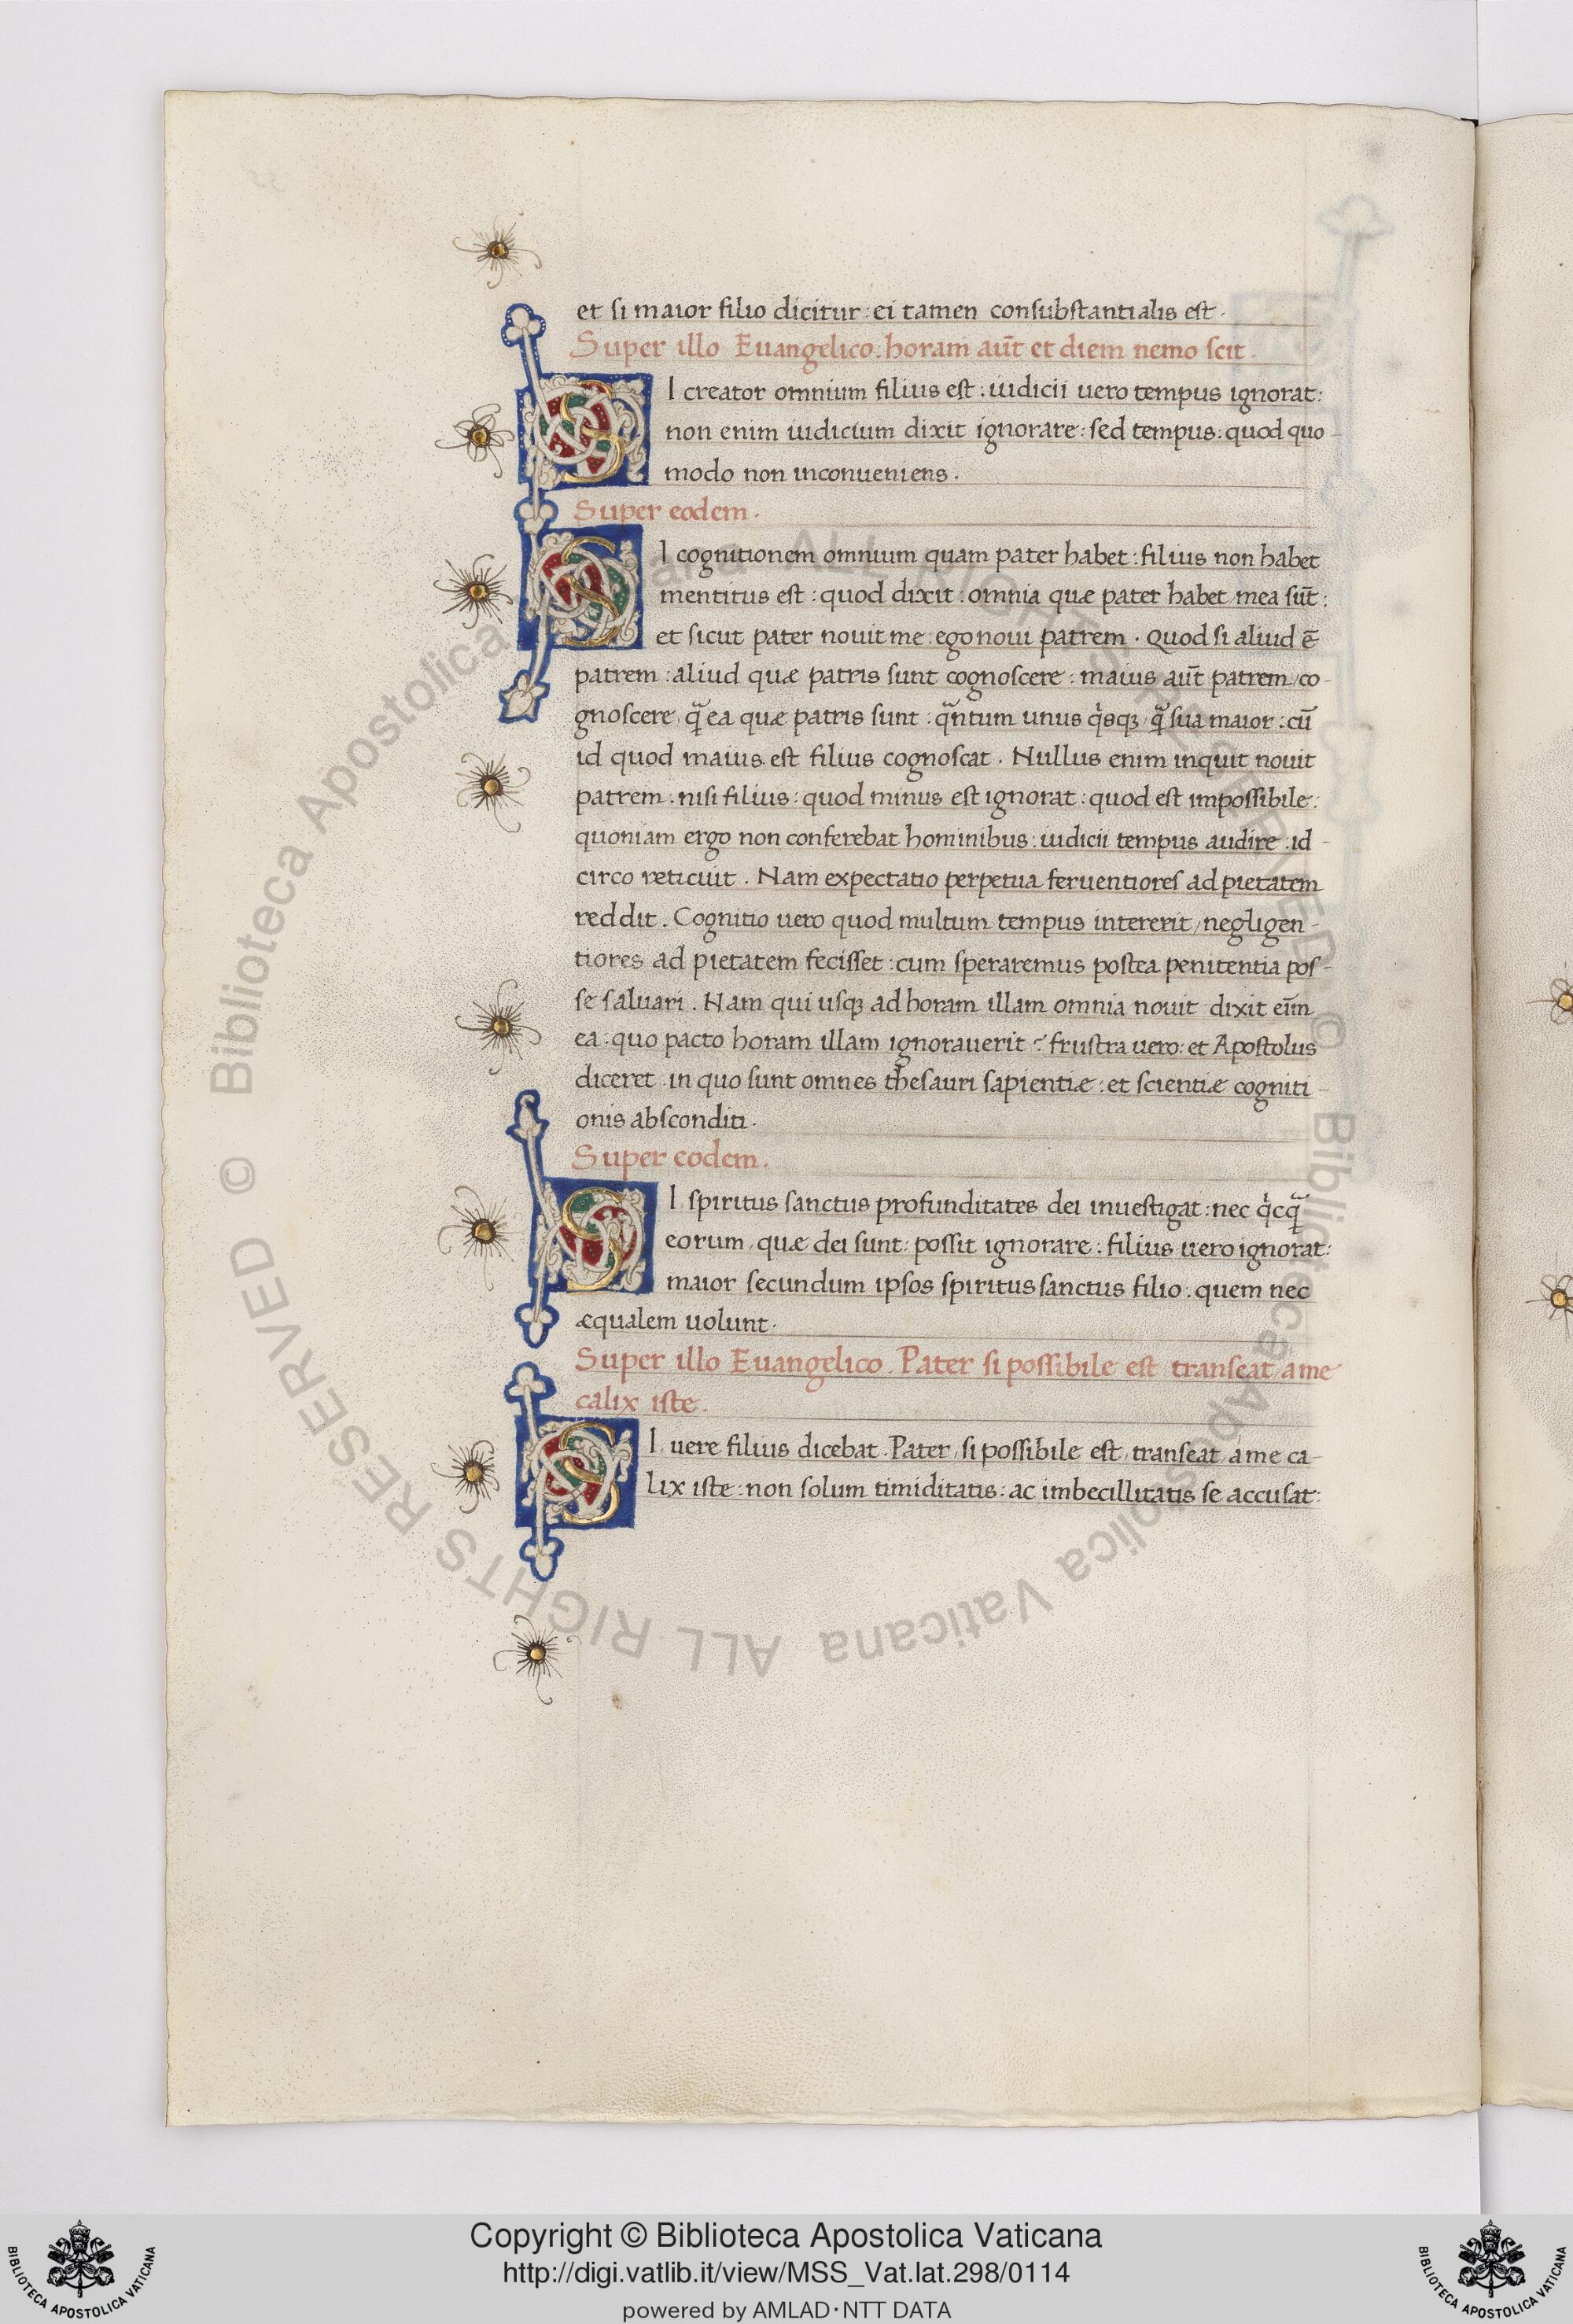 et si maior filio dicitur: ei tamen consubstantialis est.
Super illo Euangelico: horam aut̄ et diem nemo scit.
SI creator omnium filius est: iudicii uero tempus ignorat:
non enim iudicium dixit ignorare: sed tempus: quod quo-
modo non inconueniens.
Super eodem.
SI cognitionem omnium quam pater habet: filius non habet
mentitus est: quod dixit: omnia quæ pater habet mea sūt:
et sicut pater nouit me: ego noui patrem. Quod si aliud ē
patrem: aliud quæ patris sunt cognoscere: maius aūt patrem/co-
gnoscere, q̄ ea quæ patris sunt: q̄ntum unus q̇sqꝫ, q̄ sua maior: cū
id quod maius est filius cognoscat. Nullus enim inquit nouit
patrem. nisi filius: quod minus est ignorat: quod est impossibile:
quoniam ergo non conferebat hominibus: iudicii tempus audire: id-
circo reticuit. Nam expectatio perpetua feruentiores ad pietatem
reddit. Cognitio uero quod multum tempus intererit/negligen-
tiores ad pietatem fecisset: cum speraremus postea penitentia pos-
se saluari. Nam qui usqꝫ ad horam illam omnia nouit dixit eīm
ea: quo pacto horam illam ignorauerit? frustra uero: et Apostolus
diceret in quo sunt omnes thesauri sapientiæ: et scientiæ cogniti-
onis absconditi.
Super eodem.
SI spiritus sanctus profunditates dei inuestigat: nec q̇cq̄
eorum, quæ dei sunt: possit ignorare: filius uero ignorat:
maior secundum ipsos spiritus sanctus filio. quem nec
æqualem uolunt.
Super illo Euangelico. Pater si possibile est transeat/a me
calix iste.
SI uere filius dicebat. Pater, si possibile est, transeat a me ca-
lix iste: non solum timiditatis: ac imbecillitatis se accusat:
© Biblioteca Apostolica Vaticana ALL RIGHTS RESERVED
© Biblioteca Apostolica Vaticana ALL RIGHTS RESERVED
Copyright © Biblioteca Apostolica Vaticana
http://digi.vatlib.it/view/MSS_Vat.lat.298/0114
powered by AMLAD·NTT DATA
BIBLIOTECA APOSTOLICA VATICANA
BIBLIOTECA APOSTOLICA VATICANA